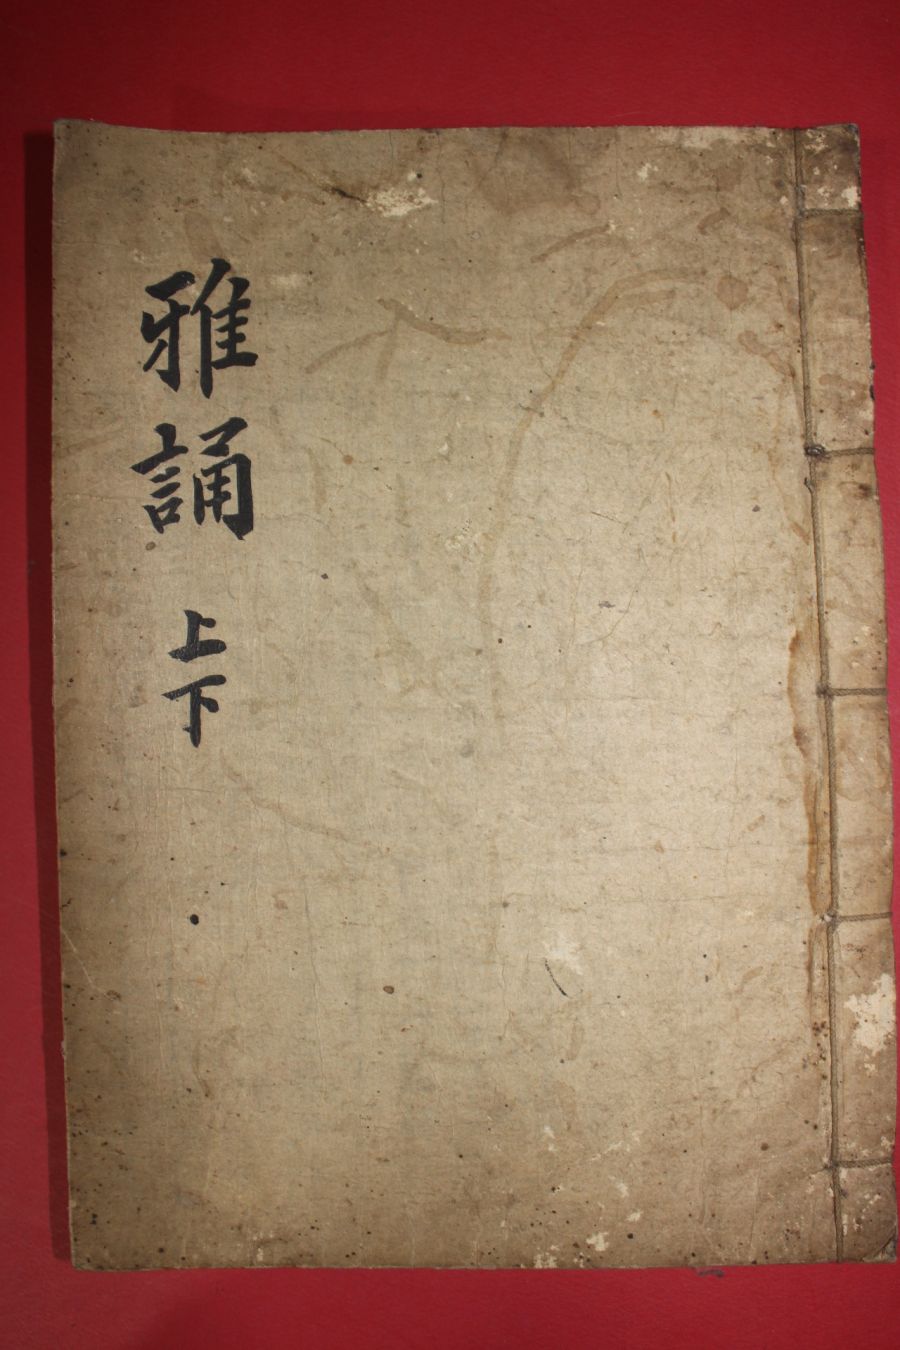 雅誦 上下